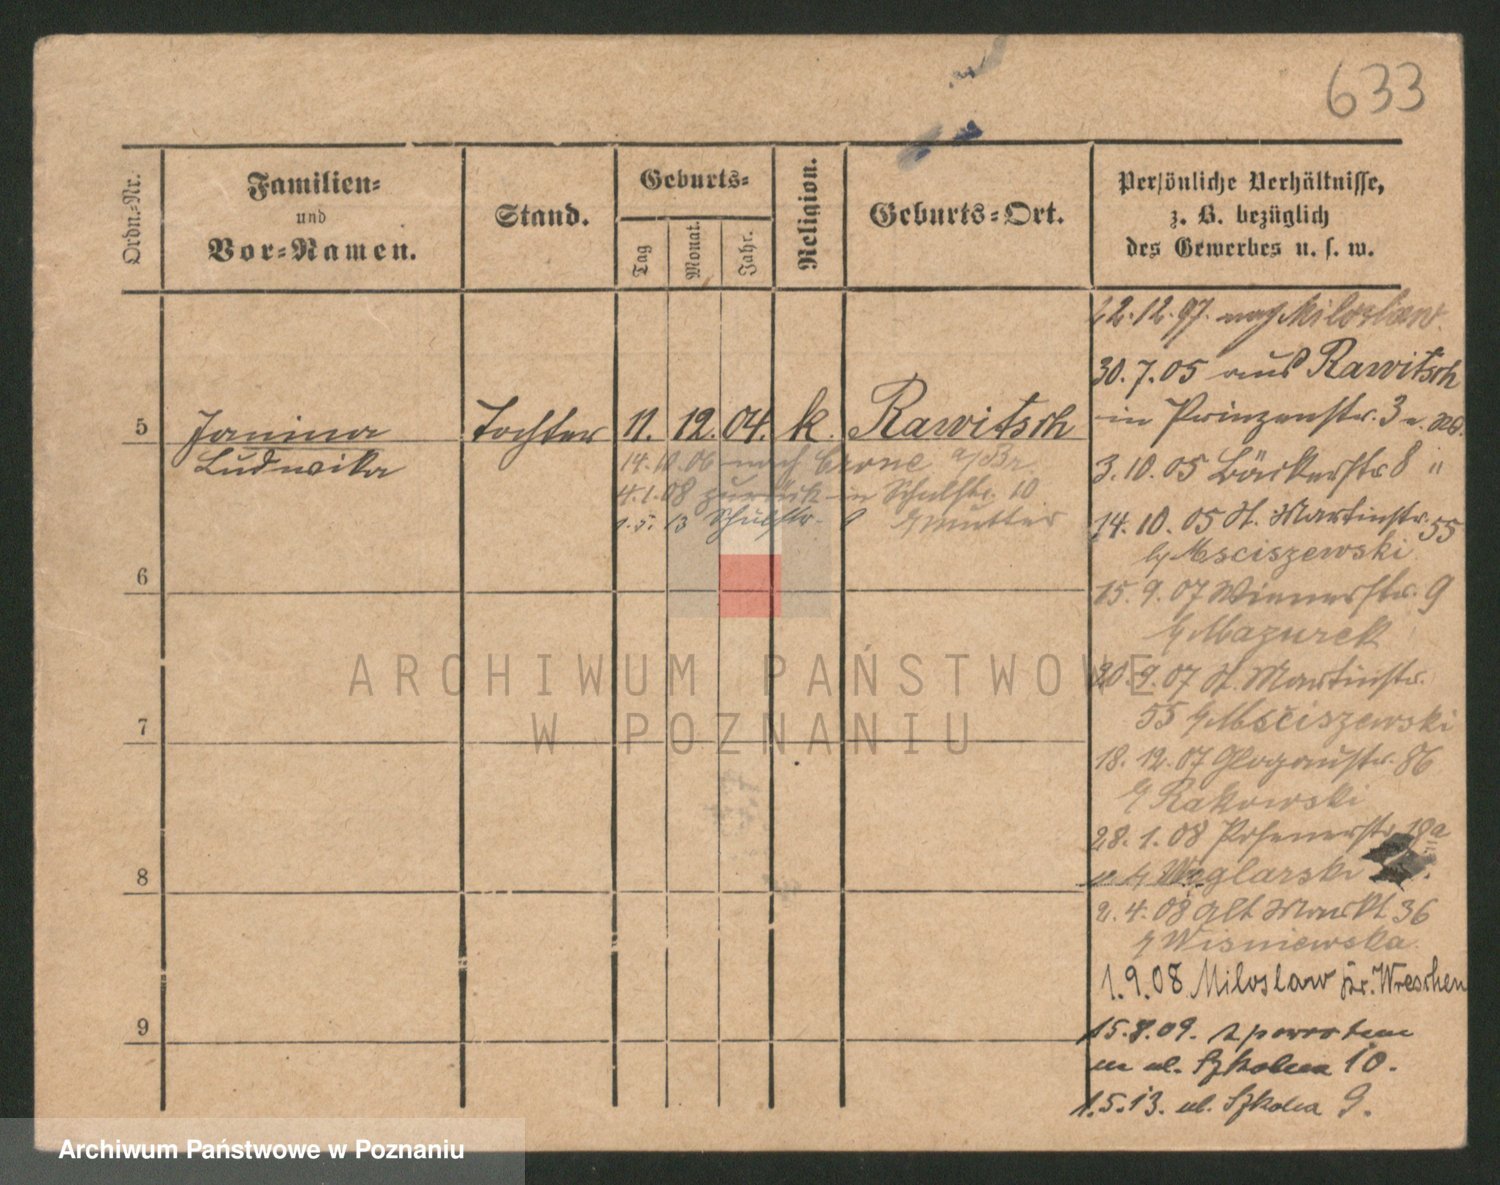 633
Ordn.-Nr.
Familien-
und
Vor-Namen.
Stand.
Geburts-
Tag
Monat.
Jahr.
Religion.
Geburts-Ort.
Persönliche Verhältnisse,
z. B. bezüglich
des Gewerbes u. s. w.
5
Janina
Ludwika
Tochter
11. 12. 04.
k.
Rawitsch
14.10.06 nach Crone a/Br.
4.1.08 zurück in Schulstr. 10
1.5.13 Schulstr. 9 Mutter
6
7
8
9
22.12.97. nach Miloslaw.
30.7.05 aus Rawitsch
in Prinzenstr. 3
3.10.05 Bäckerstr. 8 "
14.10.05 St. Martinstr. 55
b/ Msciszewski
15.9.07 Wienerstr. 9
b/ Mazurek
20.9.07 St. Martinstr.
55 b/ Mściszewski
18.12.07 Glogaustr. 86
b/ Rakowski
28.1.08 Posenerstr. 18a
b/ Węglarski
2.4.08 Alt Markt 36
b/ Wisniewska
1.9.08 Miloslaw Kr. Wreschen
15.8.09. z powrotem
na ul. Szkolna 10.
1.5.13. ul. Szkolna 9.
ARCHIWUM PAŃSTWOWE
W POZNANIU
Archiwum Państwowe w Poznaniu